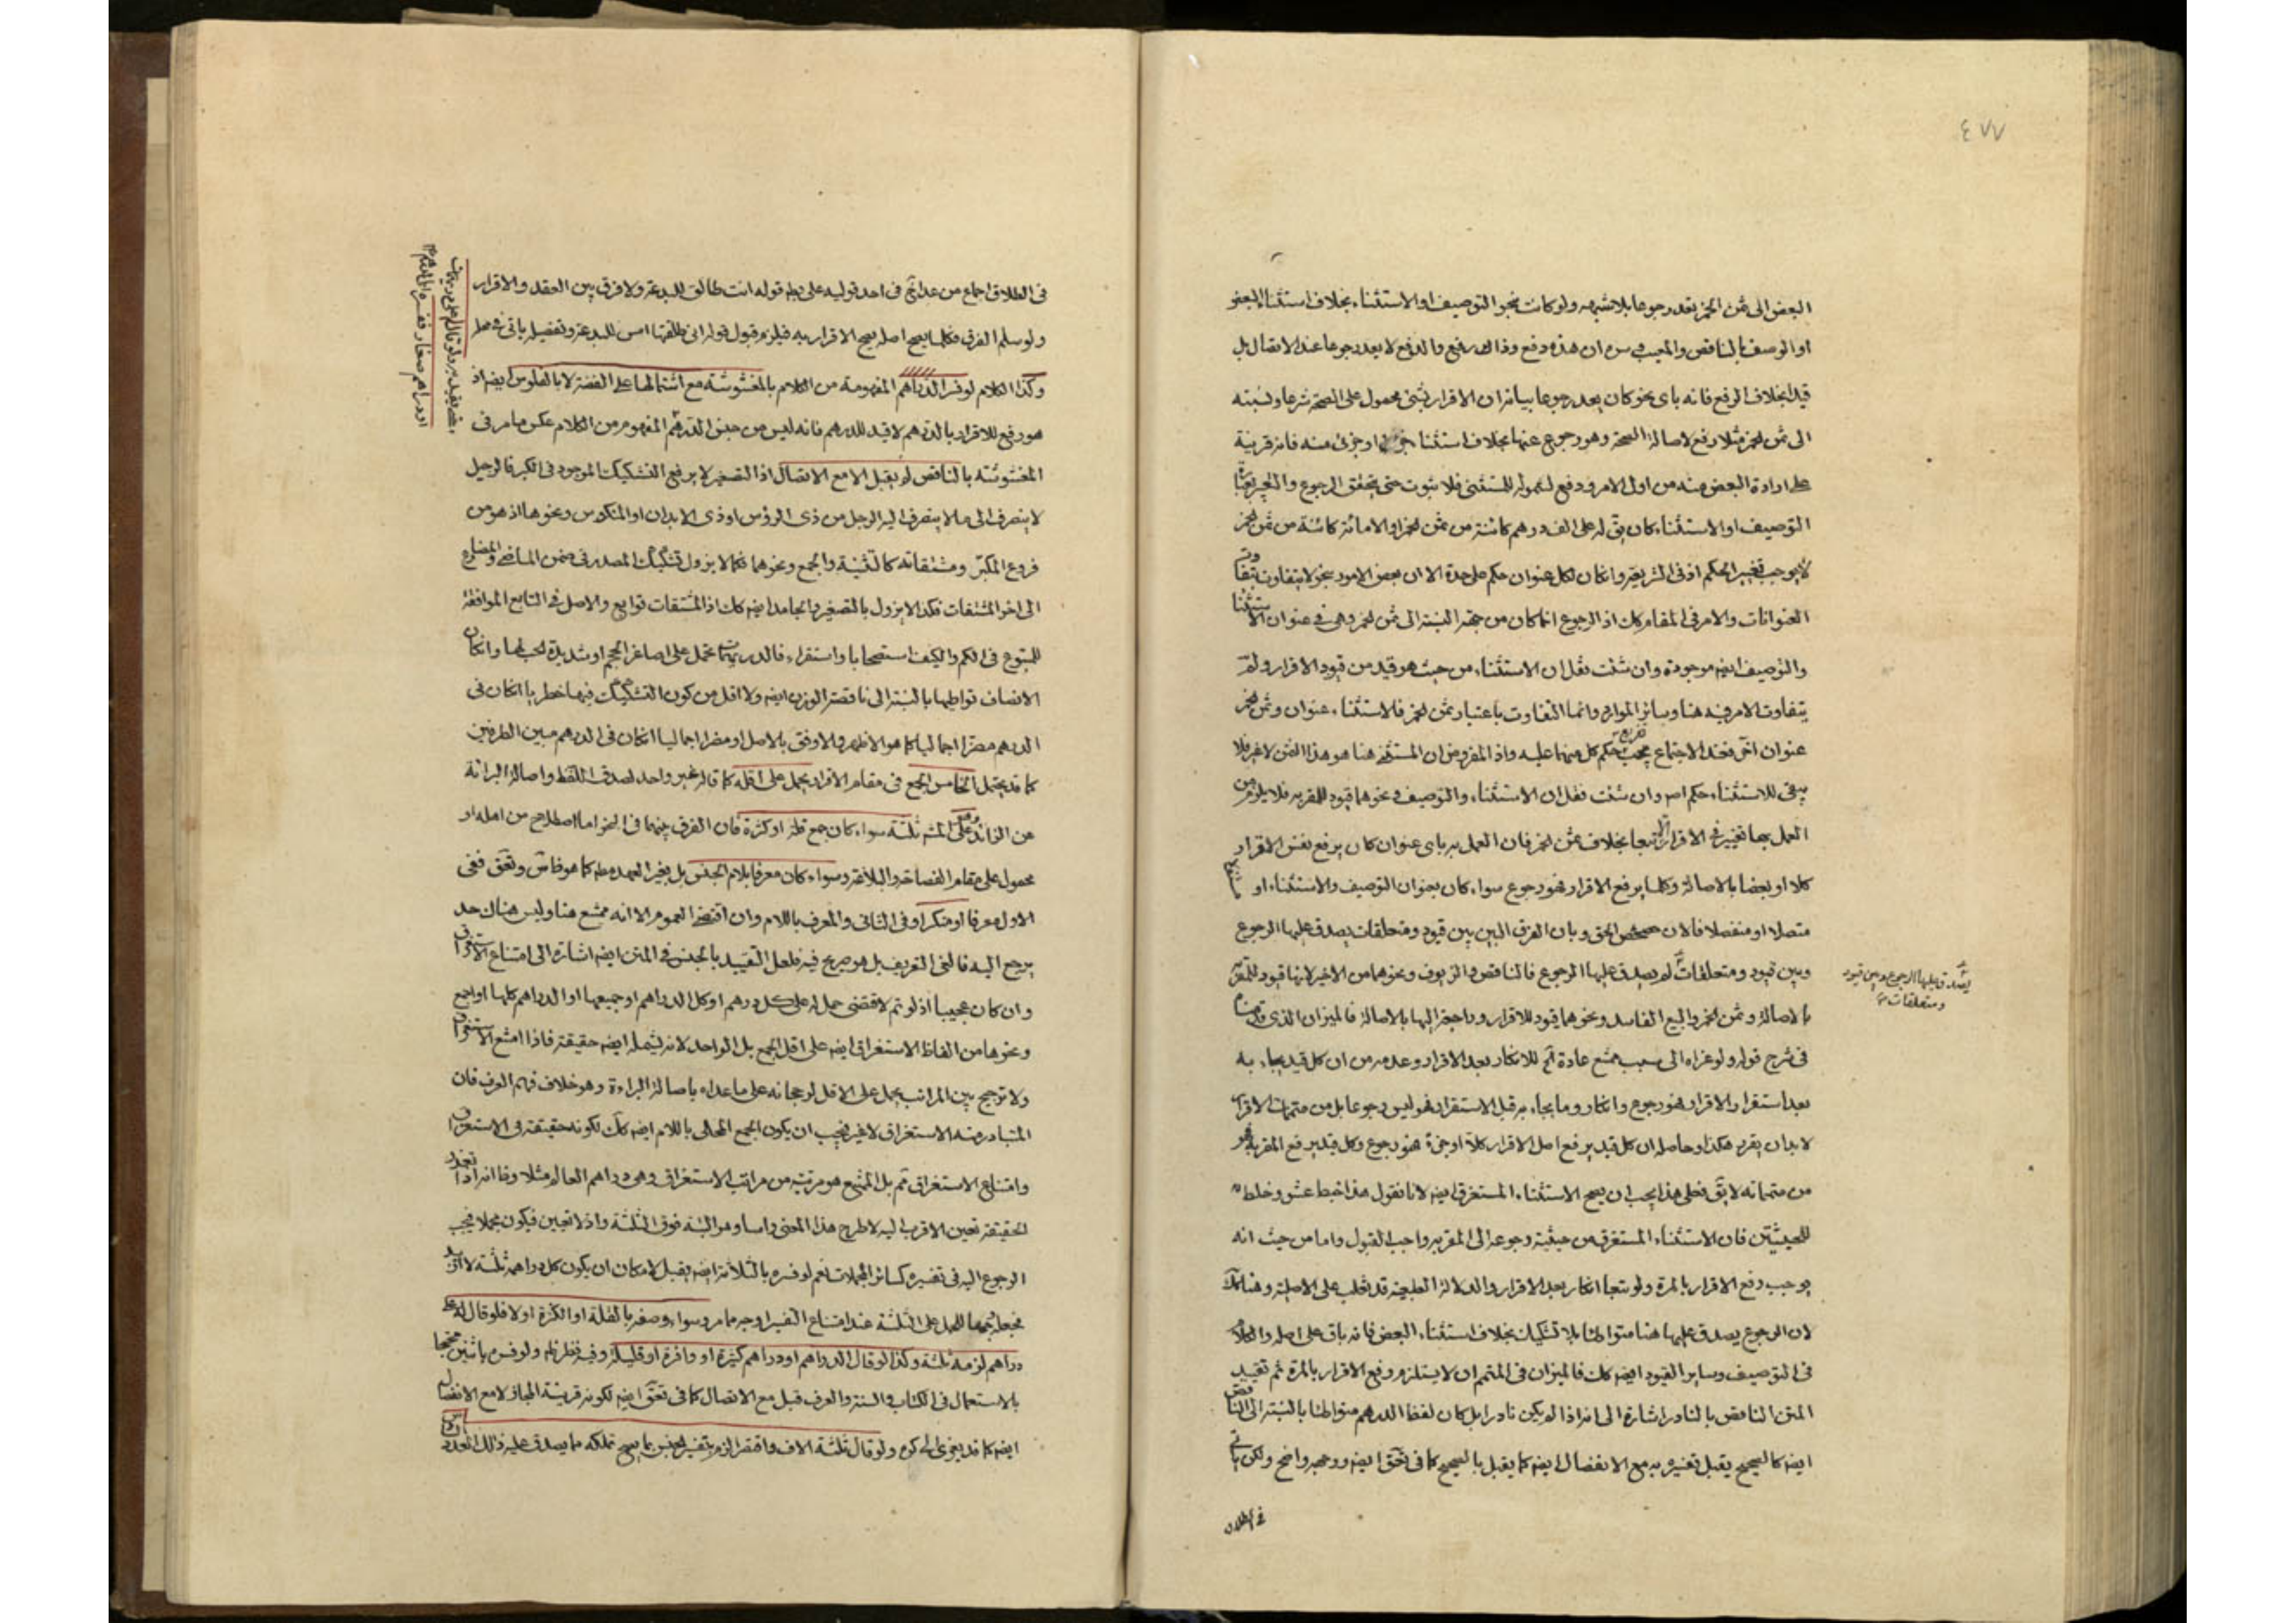 ٤٧٧
البعض الى ثمن الخمر يعد رجوعا بلا شبهه ولو كانت بنحو التوصيف او الاستثناء بخلاف استثناء البعض
او الوصف بالناقص والمعيب في سره ان هذه دفع وذاك رفع والدفع لا يعد رجوعا عند الاتصال بل
قيدا بخلاف الرفع فانه باى نحو كان يعد رجوعا بيانه ان الاقرار بشئ محمول على الصحة شرعا ونسبته
الى ثمن الخمر مثلا رفع لاصالة الصحة وهو رجوع عنها بخلاف استثناء او جزئ منه فانه قرينة
على ارادة البعض منه من اول الامر ودفع لشموله للمستثنى فلا ثبوت حتى يتحقق الرجوع والخبر
التوصيف او الاستثناء كان يق له على الف درهم كائنة من ثمن الخمر او الا مائة كائنة من ثمن الخمر
لا يوجب تغيير الحكم اذ فى الشريعة وان كان لكل عنوان حكم على حدة الا ان بعض الامور بنحو لا يتفاوت بتفاوت
العنوانات والامر فى المقام كك اذ الرجوع انما كان من جهة النسبة الى ثمن الخمر وهى فى عنوان الاستثناء
والتوصيف ايضه موجودة وان شئت فقل ان الاستثناء من حيث هو قيد من قيود الاقرار ولم
يتفاوت الامر فيه هنا وسائر الموارد وانما التفاوت باعتبار ثمن الخمر فالاستثناء عنوان وثمن الخمر
عنوان آخر فعند الاجتماع يجب حكم كل منهما عليه واذ المفروض ان المستثنى هنا هو هذا الثمن لا غير فلا
يبقى للاستثناء حكم اصه وان شئت فقل ان الاستثناء والتوصيف ونحوهما قيود للمقر به فلا يلزم من
العمل بها تغيير فى الاقرار الا تبعا بخلاف ثمن الخمر فان العمل به باى عنوان كان يرفع نفس الاقرار
كلا او بعضا بالاصالة وكلما يرفع الاقرار فهو رجوع سواء كان بعنوان التوصيف والاستثناء او
متصلا او منفصلا فالان حصحص الحق وبان الفرق البين بين قيود ومتعلقات يصدق عليها الرجوع
وبين قيود ومتعلقات لم يصدق عليها الرجوع فالناقص والزيوف ونحوهما من الاخير لانها قيود للمقر به
يصدق عليها الرجوع وبين قيود
ومتعلقات
بالاصالة وثمن الخمر والبيع الفاسد ونحوهما قيود للاقرار وراجعة اليها بالاصالة فالميزان الذى
فى شرح قوله ولو عزاه الى سبب يمتنع عادة اتم للانكار بعد الاقرار وعدمه من ان كل قيد يجاء به
بعد استقرار الاقرار فهو رجوع وانكار وما يجاء به قبل الاستقرار فهو ليس رجوعا بل من متممات الاقرار
لا بد ان يقرر هكذا وحاصله ان كل قيد يرفع اصل الاقرار كلا او جزءا فهو رجوع وكل قيد يرفع المقر به فهو
من متمماته لا يق فعلى هذا يجب ان يصح الاستثناء المستغرق ايضه لانا نقول هذا خبط عشو وخلط
للحيثيتين فان الاستثناء المستغرق من حيثية رجوعه الى المقر به واجب القبول واما من حيث انه
يوجب دفع الاقرار بالمرة ولو تبعا انكار بعد الاقرار والدلالة التبعية قد تغلب على الاصلية وهنا كك
لان الرجوع يصدق عليها هنا متواطئا بلا تشكيك بخلاف استثناء البعض فانه باق على اصله والكلام
فى التوصيف وساير القيود ايضه كك فالميزان فى المتمم ان لا يستلزم رفع الاقرار بالمرة ثم تقييد
المتن الناقص بالنادر اشارة الى انه اذا لم يكن نادرا بل كان لفظ الدرهم متواطئا بالنسبة الى الناقص
ايضه كالصحيح يقبل تفسيره به مع الانفصال ايضه كما يقبل بالصحيح كما فى تحق ايضه ووجهه واضح ولكن ياتى
فى الطلاق
فى الطلاق اجماع من عدا تح فى احد قوليه على قوله انت طالق للبدعة ولا فرق بين العقد والاقرار
ولو سلم الفرق فكلما يصح اصله يصح الاقرار به فيلزم قبول قوله انى طلقتها امس للبدعة وتفصيل ياتى فى محله
وكذا الكلام لو فسر الدراهم المفهومة من الكلام بالمغشوشة مع اشتمالها على الفضة لا بالفلوس ايضه اذ
هو رفع للاقرار بالدرهم لا قيد للدرهم فانه ليس من جنس الدرهم المفهوم من الكلام عكس ما مر فى
المغشوشة بالناقص لم يقبل الا مع الاتصال اذ التصغير لا يرفع التشكيك الموجود فى المكبر فالرجل
لا ينصرف الى ما لا ينصرف اليه الرجل من ذى الرؤس او ذى الابدان او المنكوس ونحوها اذ هو من
فروع المكبر ومشتقاته كالتثنية والجمع ونحوهما فكما لا يزول تشكيك المصدر فى ضمن الماضى والمضارع
الى اخر المشتقات فكذا لا يزول بالتصغير والجامد ايضه كك اذ المشتقات توابع والاصل فى التابع الموافقة
للمتبوع فى الكم والكيف استصحابا واستقراء فالدريهمات تحمل على اصاغر الحجم او شديدة الحب لها وان كان
الانصاف تواطيها بالنسبة الى ناقصة الوزن ايضه ولا اقل من كون التشكيك فيها خطريا ان كان فى
الدرهم مضرا اجماليا كما هو الاظهر والاوفق بالاصل او مضرا اجماليا ان كان فى الدرهم مبين الطرفين
كما قد يحتمل الخامس الجمع فى مقام الاقرار يحمل على اقله كما قاله غير واحد لصدق اللفظ واصالة البرائة
عن الزائد وهو على المشه ثلثة سواء كان جمع قلة او كثرة فان الفرق بينهما فى النحو اما اصطلاح من اهله او
محمول على مقام الفصاحة والبلاغة وسواء كان معرفا بلام الجنس بل بغير العهد مطه كما هو فاش وتحق ففى
الاول معرفا او منكرا وفى الثانى والمعرف باللام وان اقتضى العموم الا انه ممتنع هنا وليس هناك حد
يرجع اليه فالغى التعريف بل هو صريح فيه فلعل التقييد بالجنس فى المتن ايضه اشارة الى امتناع الاستغراق
وان كان عجيبا اذ لو تم لاقتضى حمل له على كل درهم او كل الدراهم او جميعها او الدراهم كلها او اجمع
ونحوها من الفاظ الاستغراق ايضه على اقل الجمع بل الواحد لانه يشمله ايضه حقيقة فاذا امتنع الاستغراق
ولا ترجيح بين المراتب يحمل على الاقل لرجحانه على ما عداه باصالة البراءة وهو خلاف فهم العرف فان
المتبادر منه الاستغراق لا غير فيجب ان يكون الجمع المحلى باللام ايضه كك لكونه حقيقة فى الاستغراق
وامتناع الاستغراق ثم بل الممتنع هو مرتبة من مراتب الاستغراق وهى دراهم العالم مثلا وفا اذا تعذر
الحقيقة تعين الاقرب اليه لا طرح هذا المعنى راسا وهو البتة فوق الثلثة واذ لا تعيين فيكون مجملا فيجب
الرجوع اليه فى تفسيره كسائر المجملات نعم لو فسره بالثلاثة ايضه يقبل لامكان ان يكون كل دراهمه ثلثة لا ازيد
الحمل على الثلثة عند امتناع التفسير اوجه مما مر وسواء وصفه بالقلة او الكثرة او لا فلو قال له على
دراهم لزمه ثلثة وكذا لو قال الدراهم او دراهم كثيرة او وافرة او قليلة وفيه نظر ولو فسره باثنين محتجا
بالاستعمال فى الكتاب والسنة والعرف قبل مع الاتصال كما فى تحق ايضه لكونه قرينة المجاز لا مع الانفصال
ايضه كما قد يعزى الى كره ولو قال ثلثة الاف واقتصر الزم بتفسير الجنس بما يصح تملكه مما يصدق عليه ذلك العدد
ولو قال له على دريهمات
او دراهم صغار ففسره